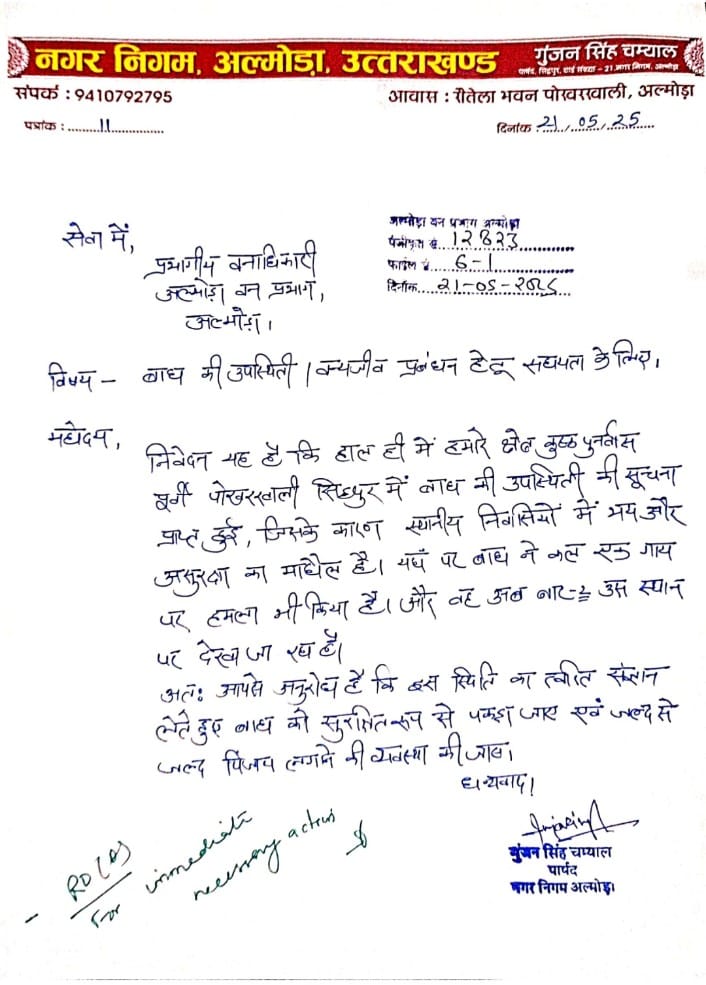 नगर निगम, अल्मोड़ा, उत्तराखण्ड
गुंजन सिंह चम्याल
पार्षद, सिद्धपुर, वार्ड संख्या - 21, नगर निगम, अल्मोड़ा
संपर्क : 9410792795
आवास : रौतेला भवन पोखरखाली, अल्मोड़ा
पत्रांक : 11
दिनांक 21/05/25
सेवा में,
प्रभागीय वनाधिकारी
अल्मोड़ा वन प्रभाग,
अल्मोड़ा।
अल्मोड़ा वन प्रभाग अल्मोड़ा
पंजीकृत सं. 12823
फाईल सं. 6-1
दिनांक 21-05-2025
विषय - बाघ की उपस्थिती / वन्यजीव प्रबंधन हेतू सहायता के लिए।
महोदय,
निवेदन यह है कि हाल ही में हमारे क्षेत्र कुष्ठ पुनर्वास
पूर्वी पोखरखाली सिद्धपुर में बाघ की उपस्थिती की सूचना
प्राप्त हुई, जिसके कारण स्थानीय निवासियों में भय और
असुरक्षा का माहौल है। यहां पर बाघ ने कल एक गाय
पर हमला भी किया है। और वह अब बार-२ उस स्थान
पर देखा जा रहा है।
अतः आपसे अनुरोध है कि इस स्थिति का त्वरित संज्ञान
लेते हुए बाघ को सुरक्षित रूप से पकड़ा जाए एवं जल्द से
जल्द पिंजरा लगाने की व्यवस्था की जाय।
धन्यवाद।
गुंजन सिंह चम्याल
पार्षद
नगर निगम अल्मोड़ा
- RO (A)
For immediate
necessary action